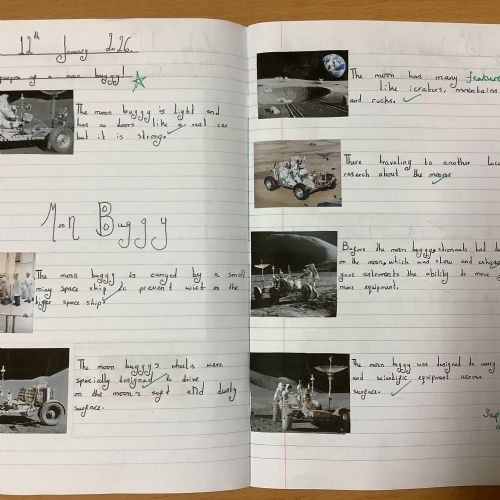 12th January 2026.
of a moon buggy!
The moon buggy is light and
has no doors like a real car
but it is strong.
Moon Buggy
The moon buggy is carryed by a small
miny space ship to prevent wiet on the
space ship.
The moon buggy's wheels were
specially designed to drive
on the moon's suft and dusty
surface.
The moon has many features
like icraters, mountains
and rocks.
There traveling to another
research about the moon
Before the moon buggy astronauts had
on the moon, which was slow and
gave astronauts the ability to move
more equipment.
The moon buggy was designed to carry
and scientific equipment across
surface.